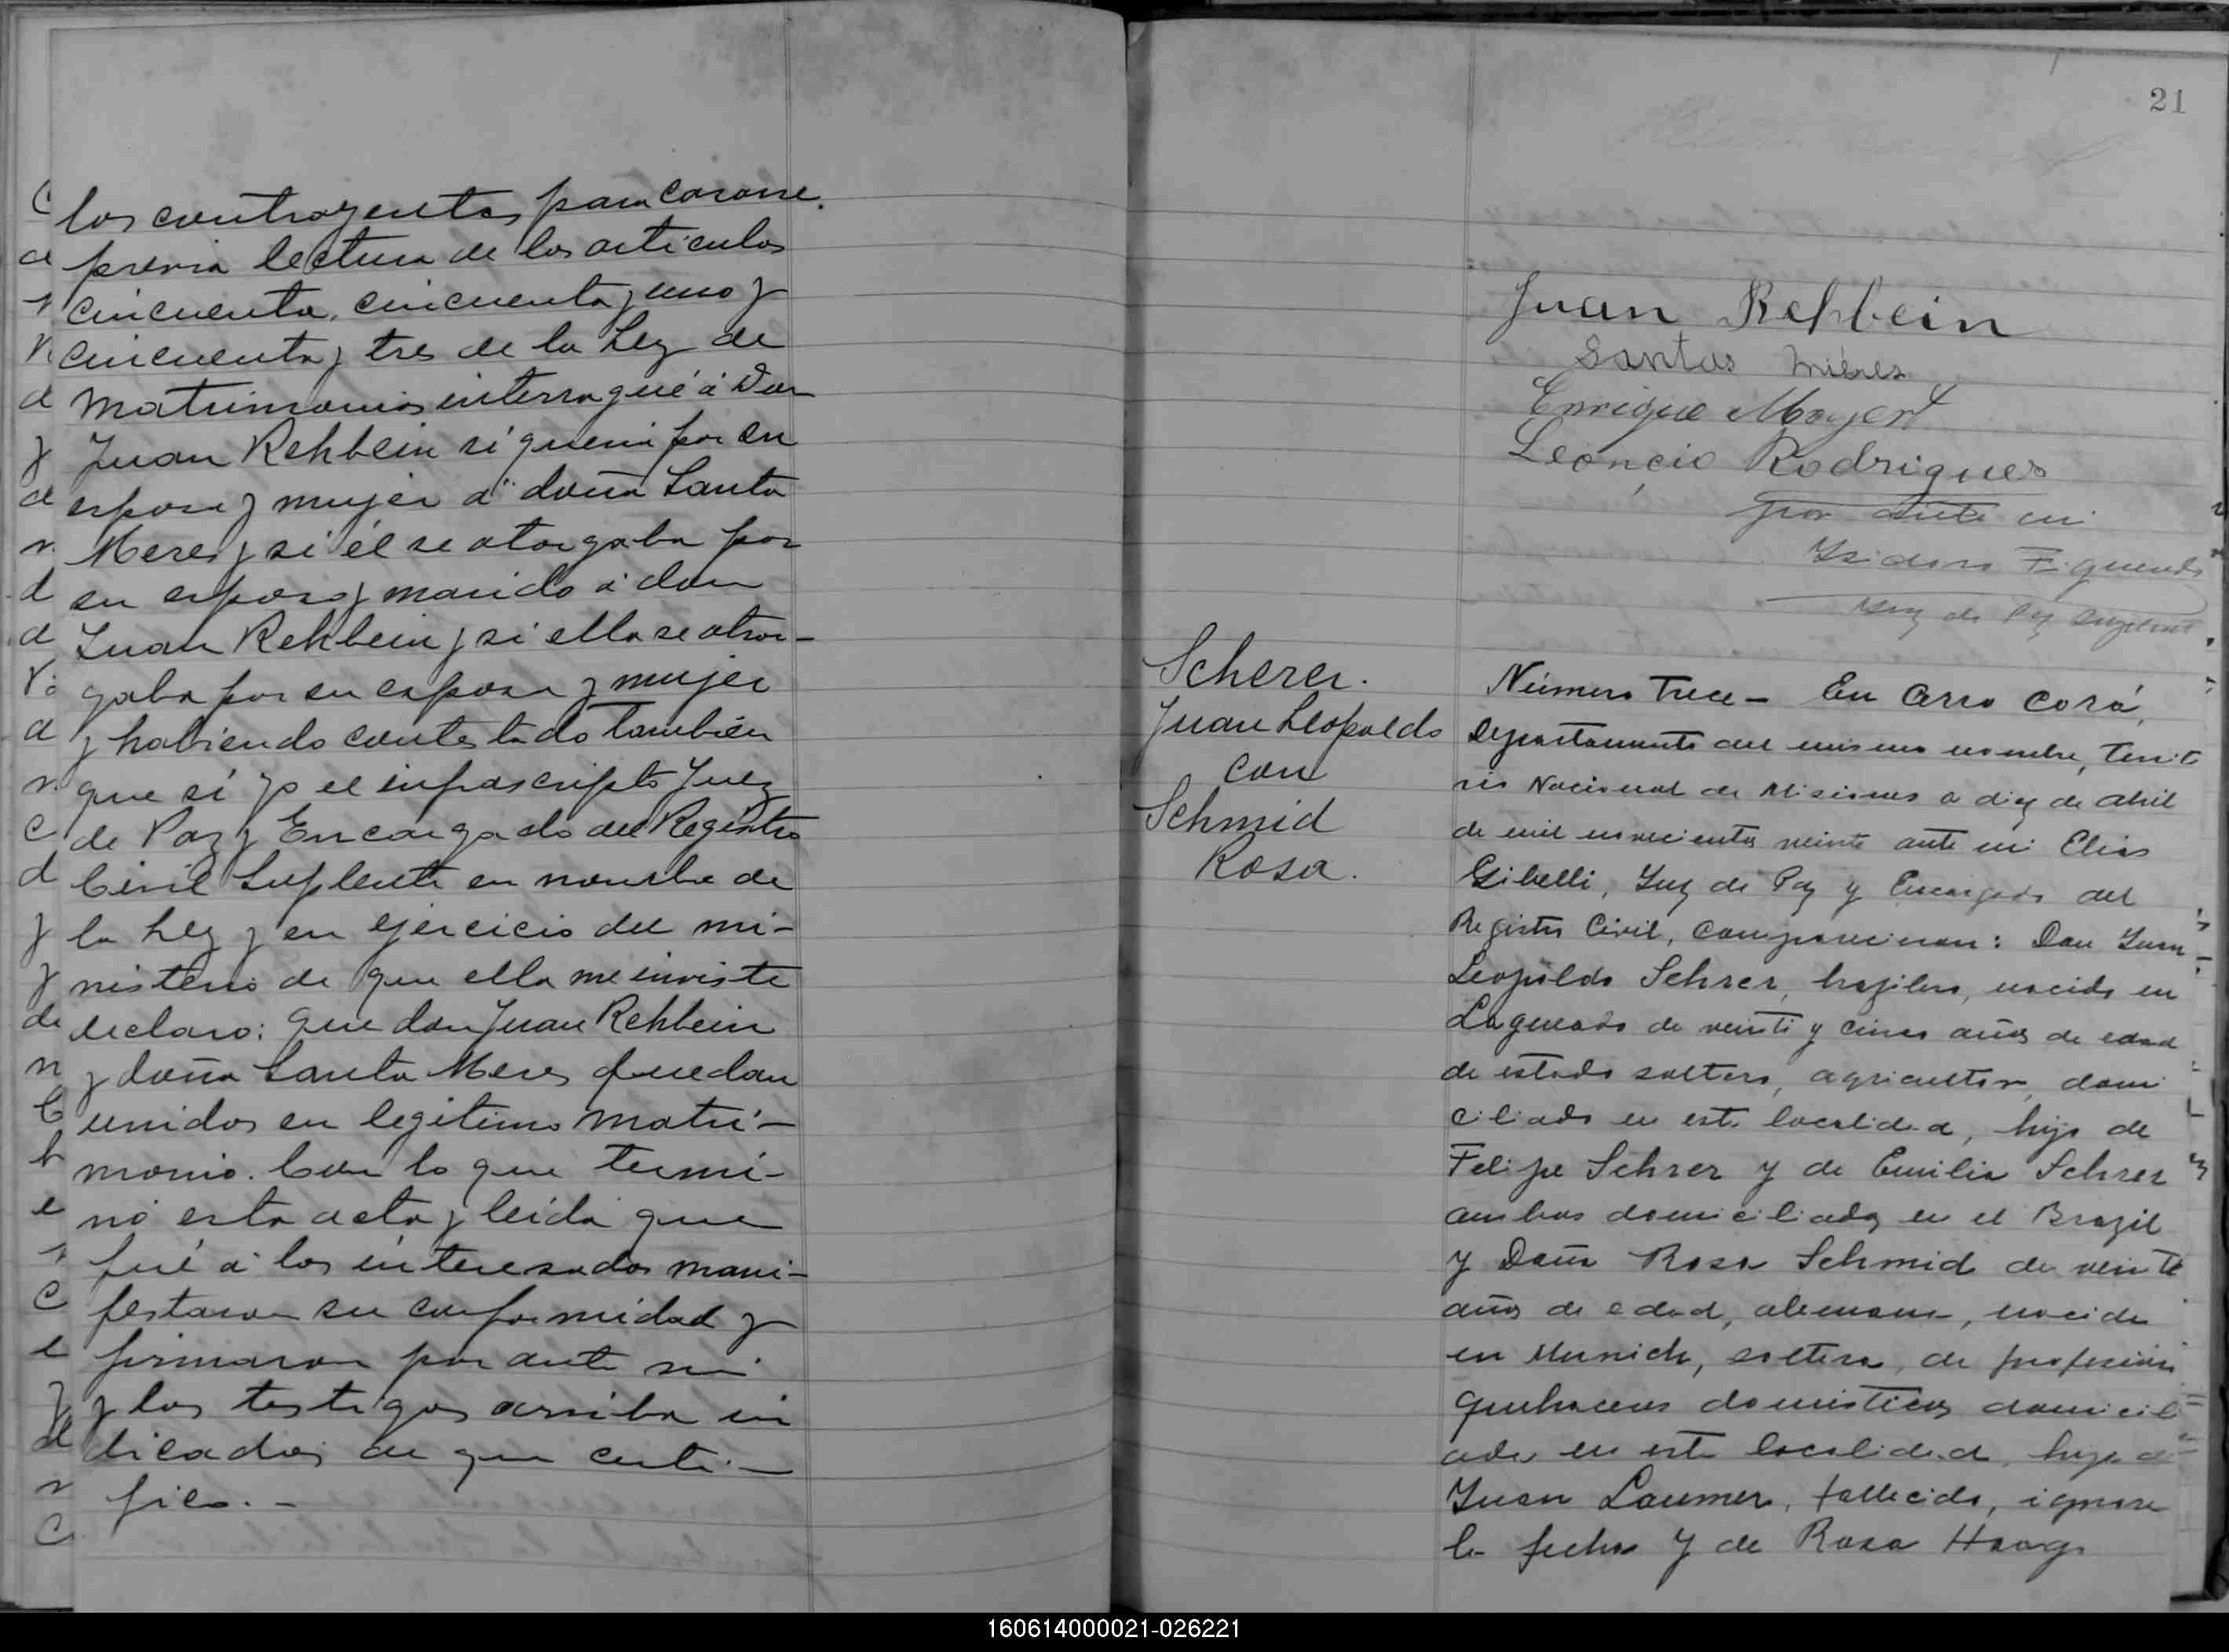 los contrayentes para casarse.
previa lectura de los artículos
cincuenta, cincuenta y uno y
cincuenta y tres de la Ley de
Matrimonio interrogué á Don
Juan Rehbein si queria por su
esposa y mujer á doña Santa
Meres y si él se otorgaba por
su esposo y marido á don
Juan Rehbein y si ella se otor-
gaba por su esposa y mujer
y habiendo contestado también
que sí yo el infrascripto Juez
de Paz y Encargado del Registro
Civil Suplente en nombre de
la Ley y en ejercicio del mi-
nisterio de que ella me inviste
declaro: que don Juan Rehbein
y doña Santa Meres quedan
unidos en legítimo matri-
monio. Con lo que termi-
nó esta acta y leida que
fué á los interesados mani-
festaron su conformidad y
firmaron por ante mi
y los testigos arriba in
dicados de que certi-
fico. -
21
Juan Rehbein
Santas
Enrique Mayert
Leoncio Rodrigues
por ante mi
Isidoro Figueredo
Juez de Paz Suplente
Scherer.
Juan Leopoldo
con
Schmid
Rosa.
Número Trece - En Cerro Corá,
Departamento del mismo nombre, Territo
rio Nacional de Misiones a diez de abril
de mil novecientos veinte ante mi Elias
Gibelli, Juez de Paz y Encargado del
Registro Civil, comparecieron: Don Juan
Leopoldo Schrer, brazilero, nacido en
Lagueado de veinti y cinco años de edad
de estado soltero, agricultor, domi
ciliado en esta localidad, hijo de
Felipe Schrer y de Emilia Schrer
ambos domiciliados en el Brazil
y Doña Rosa Schmid de veinte
años de edad, alemana, nacida
en Munich, soltera, de profesión
quehaceres domésticos domicili
ada en esta localidad, hija de
Juan Laumer, fallecido, ignora
la fecha y de Rosa Haag
160614000021-026221